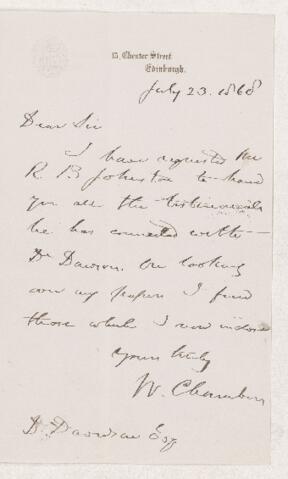 13, Chester Street
Edinburgh.
July 23. 1868
Dear Sir
I have requested Mr
R. B. Johnston to hand
you all the testimonials
he has connected with
Dr Dawson. On looking
over my papers I find
those which I now indorse
Yours truly
W. Chambers
D. Davidson Esq